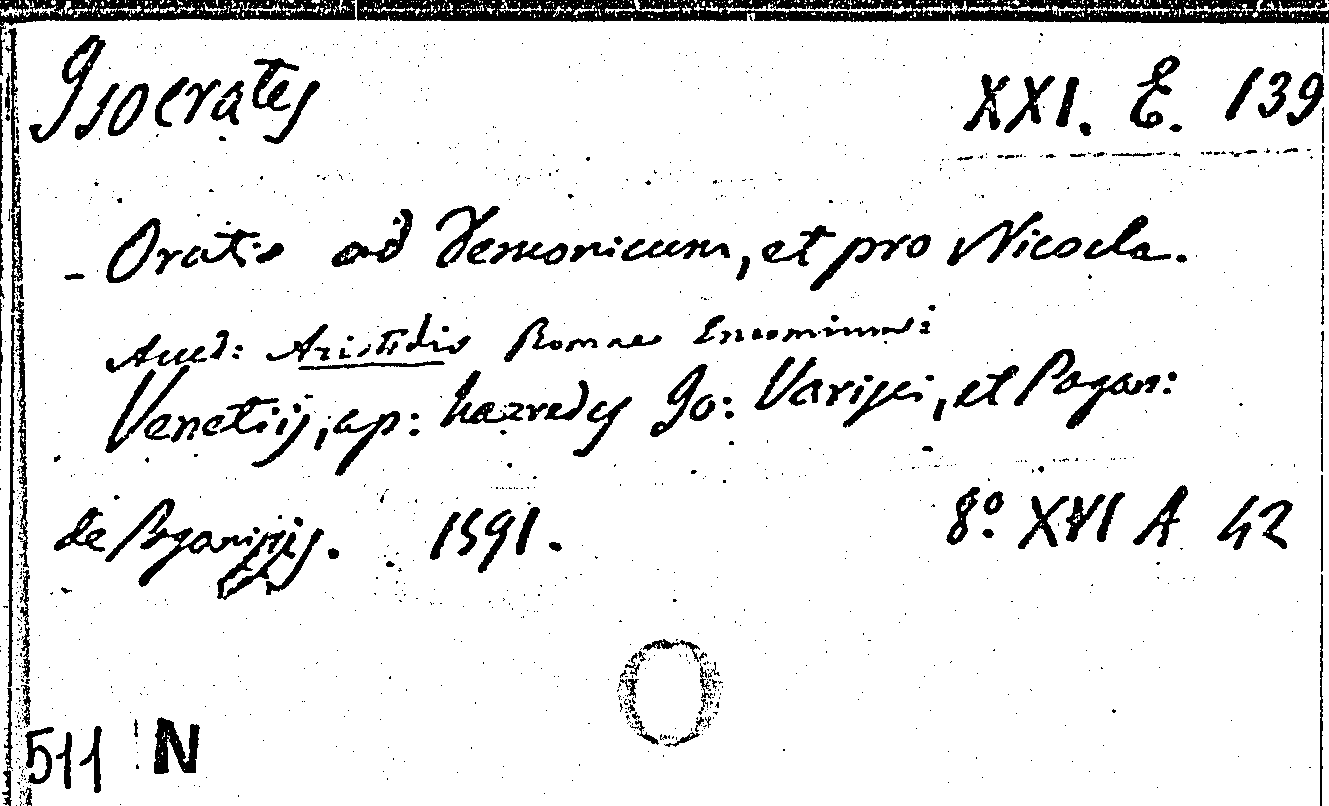 Isocrates XXI. E. 139
- Oratio ad Demonicum, et pro Nicocla.
Aced: Aristidis Romae Encomium:
Venetiis, ap: haeredes Jo: Varisci, et Pagan:
de Paganinis. 1591. 8º. XVI A 42
511 N